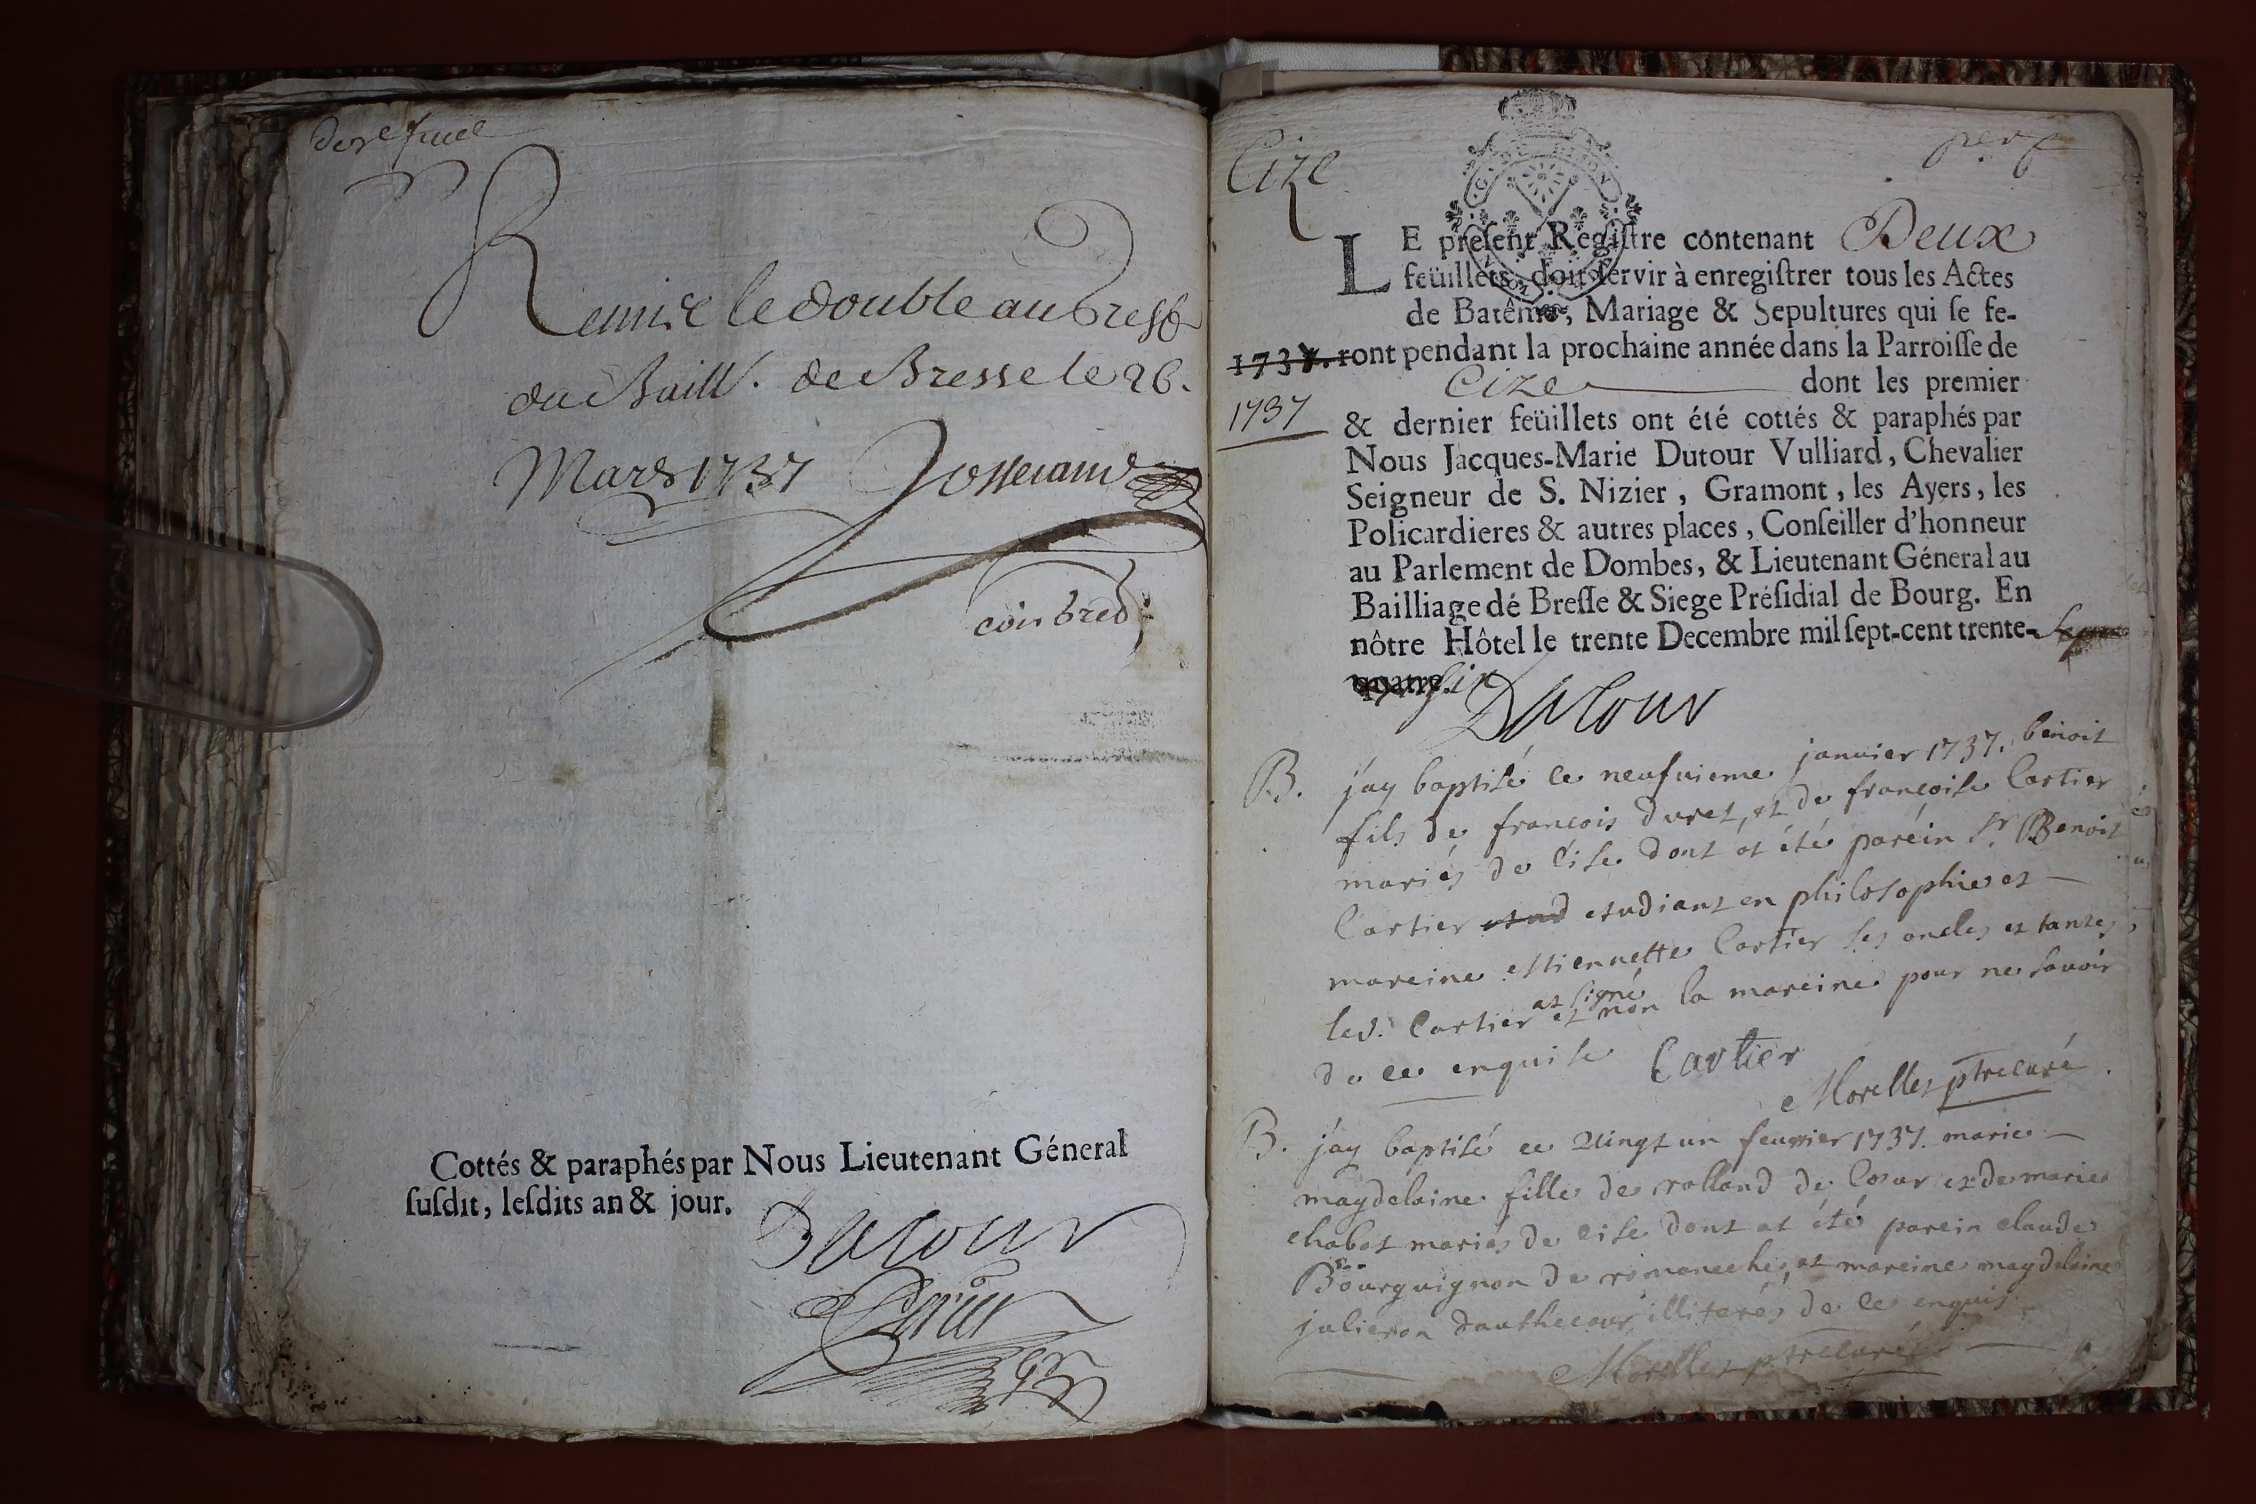 Remise le double au Greff
du Baill. de Bresse le 26.
Mars 1737 Josserand
Cottés & paraphés par Nous Lieutenant Géneral
susdit, lesdits an & jour.
Dutour
Cize
LE present Registre contenant Deux
feüillets, doit servir à enregistrer tous les Actes
de Batême, Mariage & Sepultures qui se fe-
ront pendant la prochaine année dans la Parroisse de
Cize dont les premier
1737
& dernier feüillets ont été cottés & paraphés par
Nous Jacques-Marie Dutour Vulliard, Chevalier
Seigneur de S. Nizier, Gramont, les Ayers, les
Policardieres & autres places, Conseiller d'honneur
au Parlement de Dombes, & Lieutenant Géneral au
Bailliage dé Bresse & Siege Présidial de Bourg. En
nôtre Hôtel le trente Decembre mil sept-cent trente-
quatre. six
Dutour
B. j'ay baptisé ce neufvieme janvier 1737. benoit
fils de francois duret, et de françoise Cartier
mariés de Cise dont at été parein Sr. Benoit
Cartier etud etudiant en philosophie et
mareine estiennette Cartier ses oncles et tantes,
led. Cartier at signé et non la mareine pour ne savoir
de ce enquise Cartier
Morellet ptre curé.
B. j'ay baptisé ce vingt un feuvrier 1737. marie
magdelaine fille de rolland de Coeur et de marie
chabot mariés de cise dont at été parein claude
Bourguignon de romaneche, et mareine magdelaine
julieron d'authecour, illiterés de ce enquis.
Morellet ptre curé